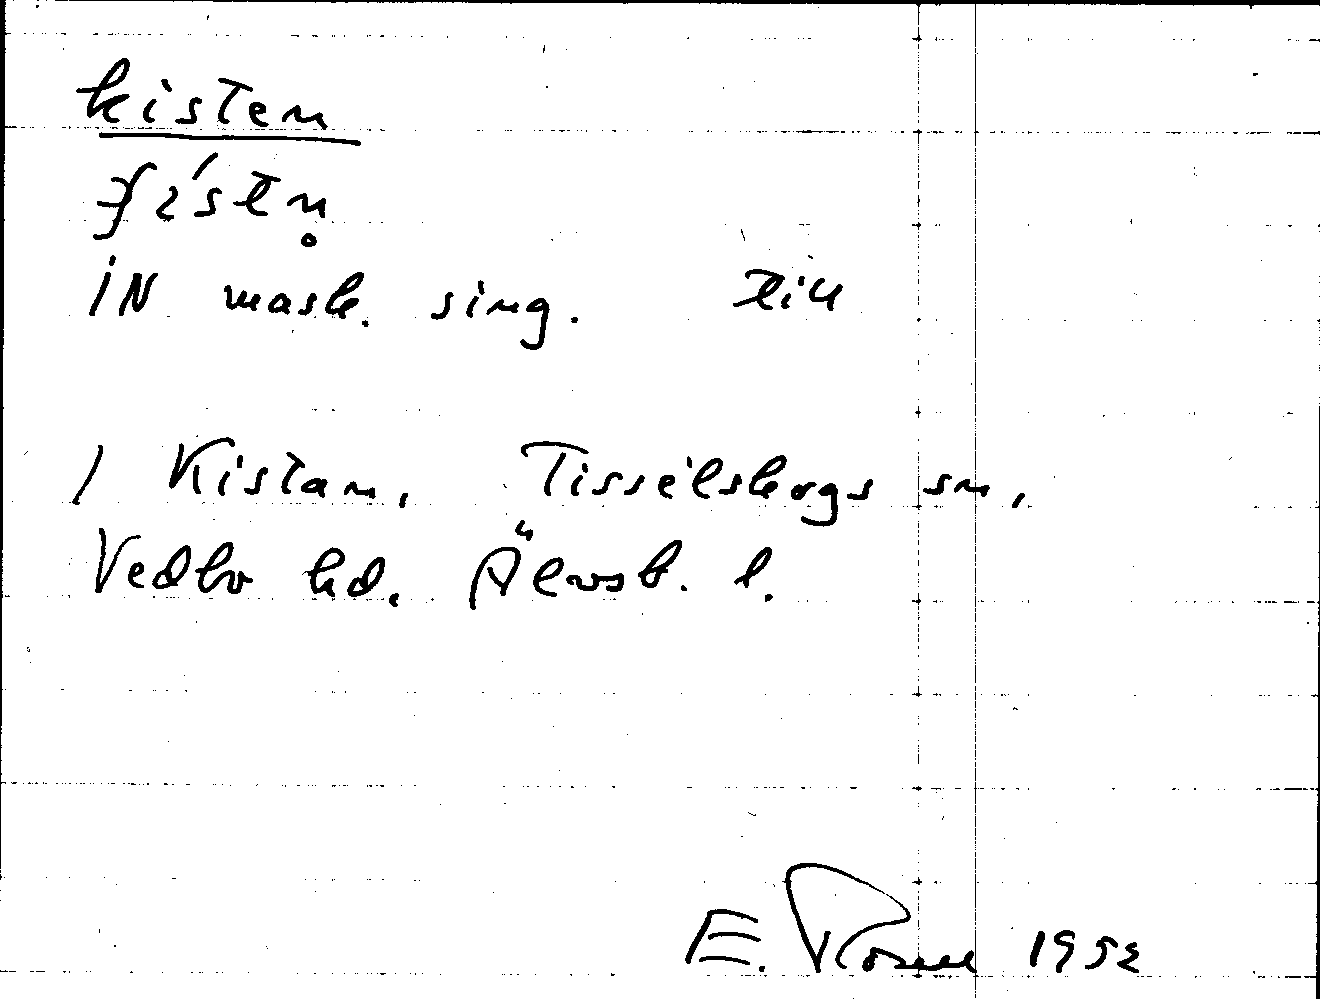 kisten
IN mask. sing. till
/ Kistan, Tisselskogs sn,
Vedbo hd. Älvsb. l.
E. Rosell 1952